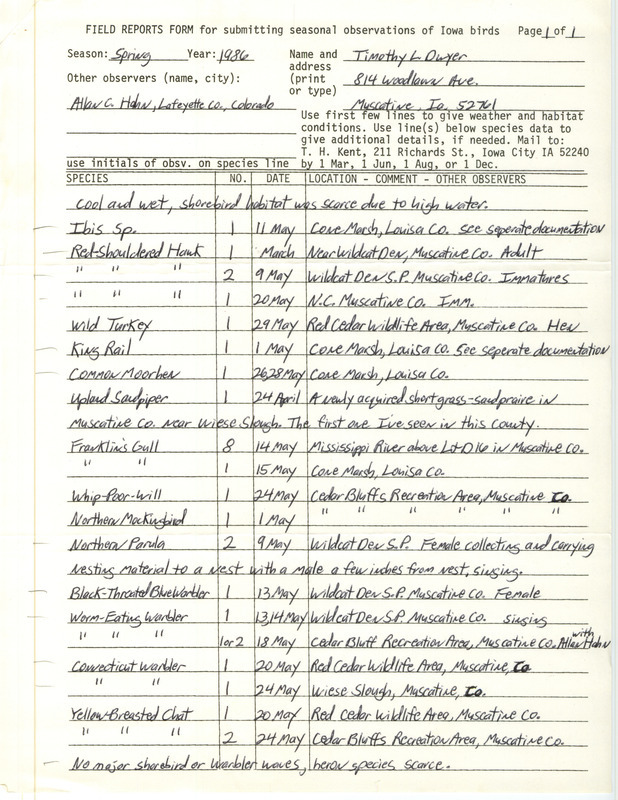 FIELD REPORTS FORM for submitting seasonal observations of Iowa birds Page 1 of 1
Season: Spring Year: 1986 Name and address (print or type) Timothy L. Dwyer
814 Woodlawn Ave.
Muscatine, Ia. 52761
Other observers (name, city):
Allan C. Hahn, Lafeyette Co., Colorado
Use first few lines to give weather and habitat
conditions. Use line(s) below species data to
give additional details, if needed. Mail to:
T. H. Kent, 211 Richards St., Iowa City IA 52240
use initials of obsv. on species line by 1 Mar, 1 Jun, 1 Aug, or 1 Dec.
SPECIES NO. DATE LOCATION - COMMENT - OTHER OBSERVERS
Cool and wet, shorebird habitat was scarce due to high water.
Ibis Sp. 1 11 May Cone Marsh, Louisa Co. see seperate documentation
Red-Shouldered Hawk 1 March Near Wildcat Den, Muscatine Co. Adult
" " " 2 9 May Wildcat Den S.P. Muscatine Co. Immatures
" " " 1 20 May N.C. Muscatine Co. Imm.
Wild Turkey 1 29 May Red Cedar Wildlife Area, Muscatine Co. Hen
King Rail 1 1 May Cone Marsh, Louisa Co. See seperate documentation
Common Moorhen 1 26,28 May Cone Marsh, Louisa Co.
Upland Sandpiper 1 24 April A newly acquired short grass-sand praire in
Muscatine Co. near Wiese Slough. The first one I've seen in this county.
Franklin's Gull 8 14 May Mississippi River above L+D 16 in Muscatine Co.
" " 1 15 May Cone Marsh, Louisa Co.
Whip-Poor-Will 1 24 May Cedar Bluffs Recreation Area, Muscatine Co.
Northern Mockingbird 1 1 May " " " " "
Northern Parula 2 9 May Wildcat Den S.P. Female collecting and carrying
Nesting material to a Nest with a male a few inches from nest, singing.
Black-Throated Blue Warbler 1 13 May Wildcat Den S.P. Muscatine Co. Female
Worm-Eating Warbler 1 13,14 May Wildcat Den S.P. Muscatine Co. singing
" " " 1 or 2 18 May Cedar Bluff Recreation Area, Muscatine Co. with Allan Hahn
Connecticut Warbler 1 20 May Red Cedar Wildlife Area, Muscatine, Co
" " 1 24 May Wiese Slough, Muscatine, Co.
Yellow-Breasted Chat 1 20 May Red Cedar Wildlife Area, Muscatine Co.
" " 2 24 May Cedar Bluffs Recreation Area, Muscatine Co.
No major shorebird or warbler waves, heron species scarce.